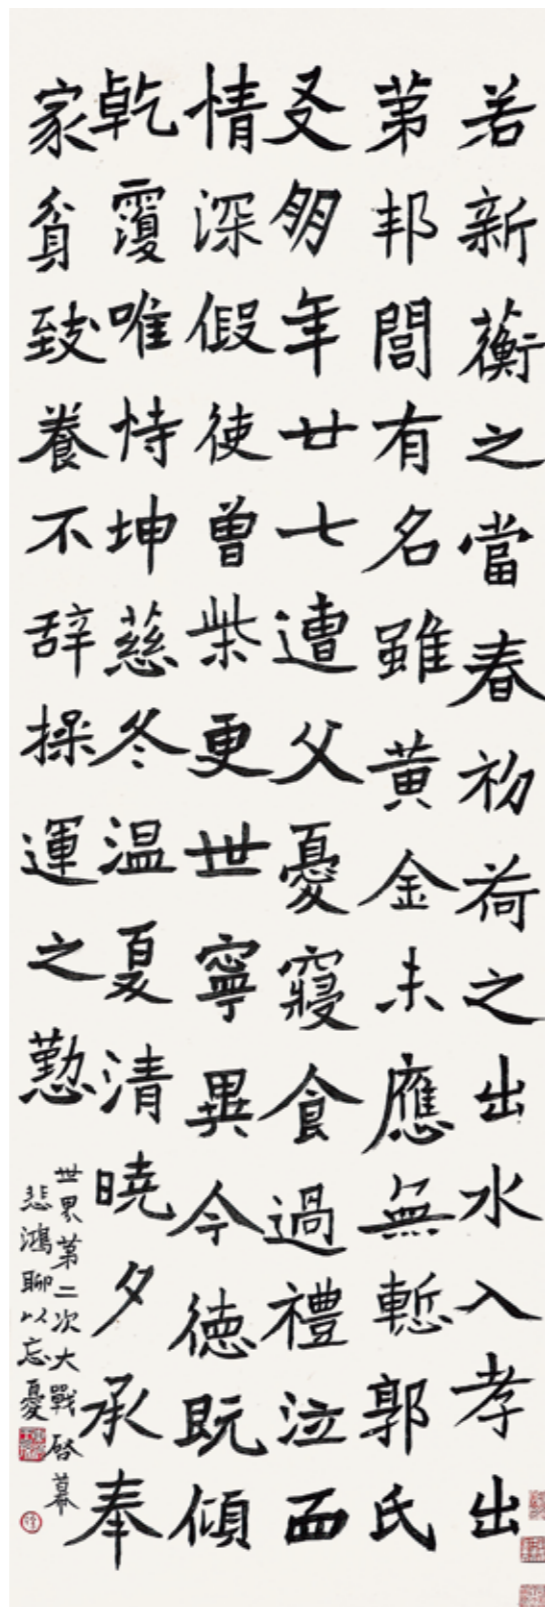 若新蘅之當春初荷之出水入孝出
苐邦閭有名雖黃金未應無慙郭氏
㕛朋年廿七遭父憂寢食過禮泣血
情深假使曾柴更世寧異今徳既傾
乾覆唯恃坤慈冬温夏清曉夕承奉
家貧致養不辞操運之懃
世界第二次大戰啓幕
悲鴻聊以忘憂